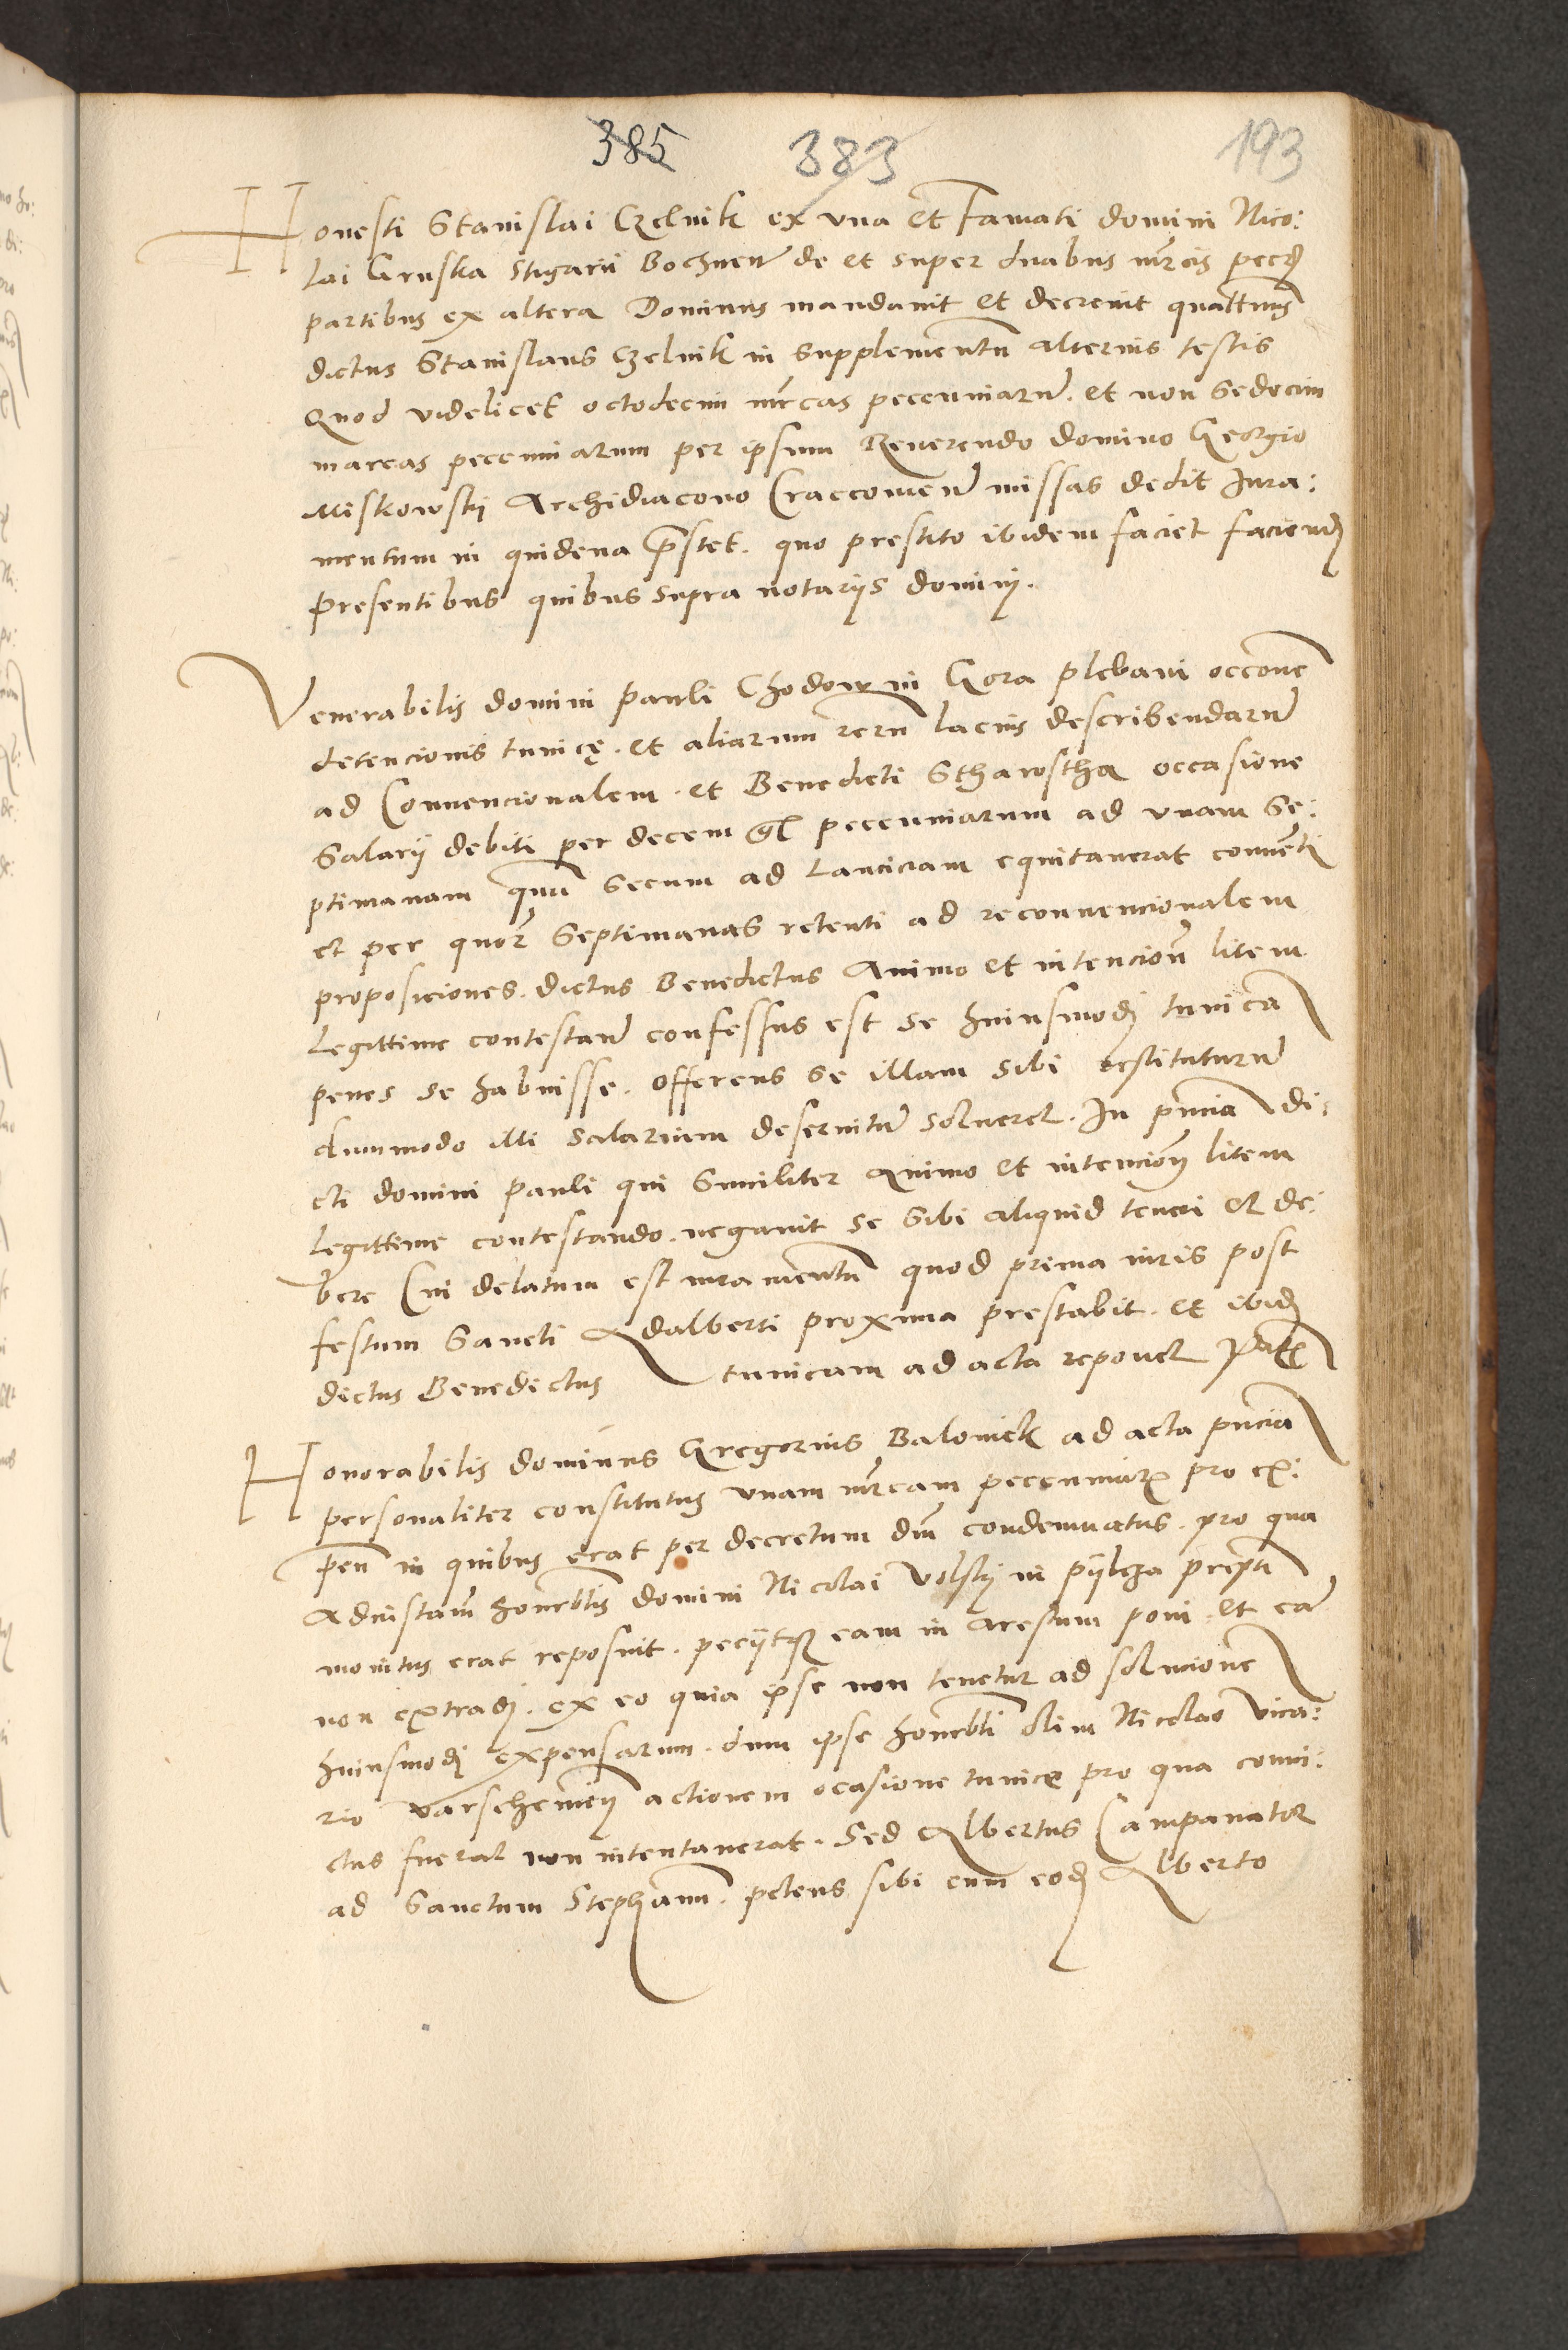 385 383 193
Honesti Stanislai Czelnik ex vna et Famati domini Nico:
lai Gruska Stigarii Bochnen de et super duabus mrcis pecc
partibus ex altera Dominus mandauit et decreuit quattenus
dictus Stanislaus Czelnik in supplementum alterius testis
Quod videlicet octodecim mrcas peccuniarum. et non sedecim
marcas peccuniarum per ipsum Reuerendo domino Georgio
Miskowskij Archidiacono Craccouien missas dedit Iura:
mentum in quidena prestet. quo prestito ibidem faciet faciend
presentibus quibus supra notarijs dominij.
Venerabilis domini pauli Chodow in Gora plebani occone
detencionis tunicę. et aliarum rerum lacius describendarum
ad Conuencionalem. et Benedicti Stharostha occasione
Salarij debiti per decem gl peccuniarum ad vnam Se:
ptimanam quum secum ad Lanciciam equitauerat conuenti
et per quor septimanas retenti ad reconuencionalem
proposiciones. dictus Benedictus Animo et intencion litem
legittime contestan confessus est se huiusmodj tunicam
penes se habuisse. offerens se illam sibi restituturum
dummodo illi salarium deseruitum solueret. In pncia di:
cti domini pauli qui similiter Animo et intencion litem
legittime contestando. negauit se sibi aliquid teneri et de:
bere Cui delatum est iuramentum quod prima iuris post
festum Sancti Adalberti proxima prestabit. et ibid
dictus Benedictus tunicam ad acta reponet
Honorabilis dominus Gregorius Balouiek ad acta pncia
personaliter constitutus vnam mrcam peccuniar pro ex:
pen in quibus erat per decretum dni condemnatus. pro qua
Ad instan honrblis domini Nicolai Volskij in pijlcza prepti
monitus erat reposuit. peciitque eam in arestum poni. et eam
non extradj. ex eo quia ipse non tenetur ad solucionem
huiusmodj expensarum. dum ipse honrbli olim Nicolao vica:
rio Varschemien actionem ocasione tunice pro qua conui:
ctus fuerat non intentauerat. Sed Albertus Campanator
ad Sanctum Stephanum. petens sibi cum eod Alberto